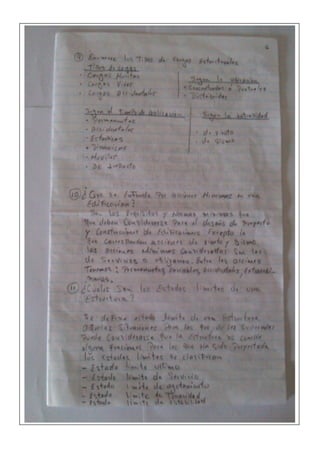 ⑨ Enumere los Tipos de cargas Estructurales
Tipos de cargas
• Cargas Muertas
• Cargas Vivas
• Cargas Accidentales
Según la ubicación
• Concentradas o Puntuales
• Distribuidas
Según el Tiempo de aplicación
• Permanentes
• Accidentales
• Estáticas
• Dinámicas
• Móviles
• DE impacto
Según la
• de viento
• de Sismo
⑩ ¿Que se Entiende Por acciones Minimas en una
Edificacion?
Son los Requisitos y Normas minimas que
que deben Considerarse Para el diseño de Proyecto
y Construcciones de Edificaciones Excepto la
que Corresponden acciones de viento y Sismo.
las acciones mínimas Consideradas Son las
de Servicios o
Tenemos: Permanentes, accidentales,
⑪ ¿Cuales Son los Estados limites de una
Estructura?
Se define estado limite de una Estructura,
aquellas Situaciones Para las que de ser Superadas
Puede Considerarse que la Estructura no cumple
alguna Funciones Para las que ha Sido Proyectada
los Estados limites se clasifican
- Estado limite ultimo
- Estado limite de Servicio
- Estado limite de agotamiento
- Estado limite de Tenacidad
- Estado limite de estabilidad